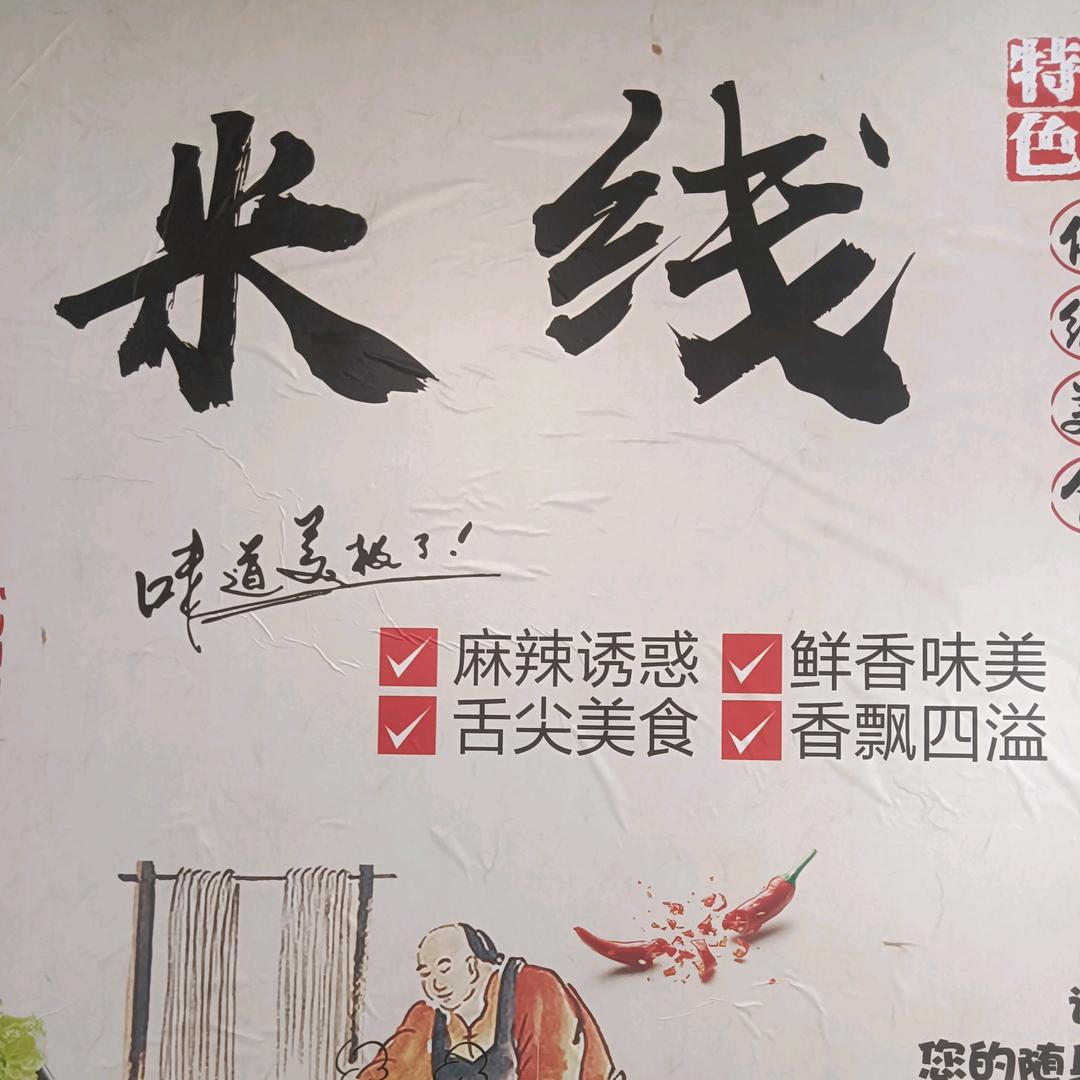 特色
米线
味道美极了!
麻辣诱惑 鲜香味美
舌尖美食 香飘四溢
您的随